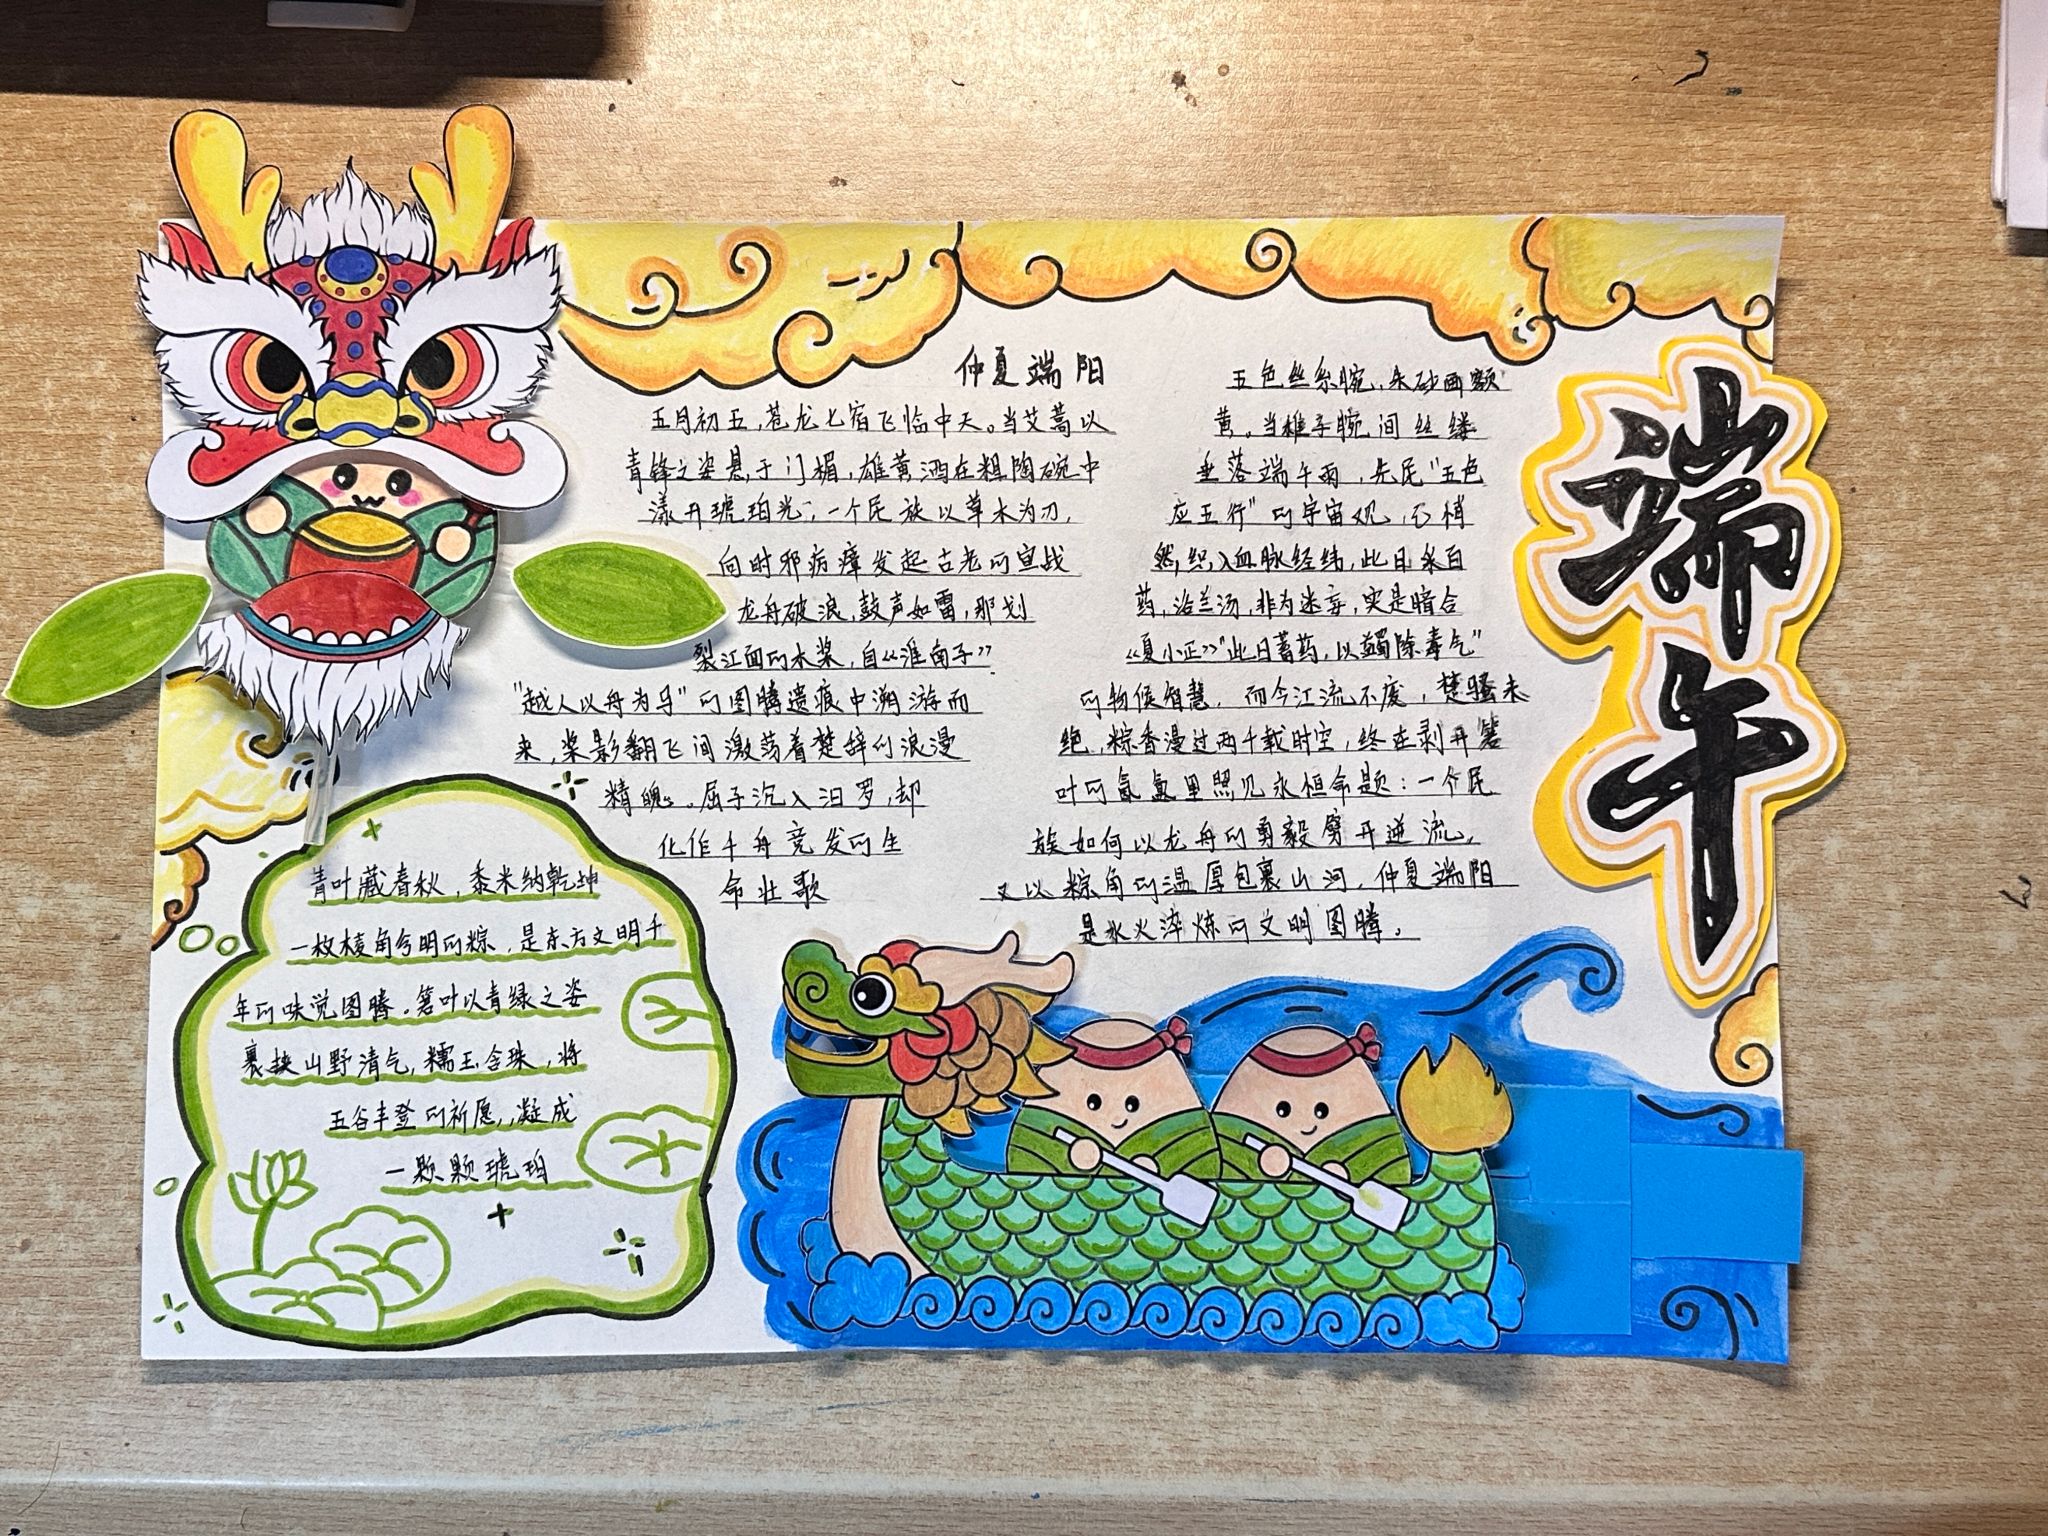 仲夏端阳
五月初五,苍龙七宿飞临中天。当艾蒿以
青锋之姿悬于门楣,雄黄酒在粗陶碗中
漾开琥珀光,一个民族以草木为刀,
向时邪病瘴发起古老的宣战
龙舟破浪,鼓声如雷,那划
裂江面的木桨,自《淮南子》
"越人以舟为马"的图腾遗痕中溯游而
来,桨影翻飞间激荡着楚辞的浪漫
精魄。屈子沉入汨罗,却
化作千舟竞发的生
命壮歌
五色丝系腕,朱砂画额
黄。当稚子腕间丝缕
垂落端午雨,先民"五色
应五行"的宇宙观,已悄
然织入血脉经纬,此日采百
药,浴兰汤,非为迷妄,实是暗合
《夏小正》"此日蓄药,以蠲除毒气"
的物候智慧,而今江流不废,楚骚未
绝,粽香漫过两千载时空,终在剥开箬
叶的氤氲里照见永恒命题:一个民
族如何以龙舟的勇毅劈开逆流,
又以粽角的温厚包裹山河,仲夏端阳
是水火淬炼的文明图腾。
端午
青叶藏春秋,黍米纳乾坤
一枚棱角分明的粽,是东方文明千
年的味觉图腾。箬叶以青绿之姿
裹挟山野清气,糯玉含珠,将
五谷丰登的祈愿,凝成
一颗颗琥珀